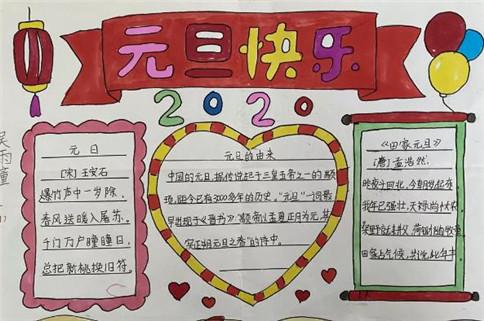 元旦快乐
2020
吴
雨
元日
[宋]王安石
爆竹声中一岁除
春风送暖入屠苏
千门万户曈曈日
总把新桃换旧符
元旦的由来
中国的元旦,据传说起于三皇五帝之一的颛
顼,距今已有3000多年的历史。“元旦”一词最
早出现于《晋书》“颛帝以孟夏正月为元,其
实正朔元旦之春”的诗中。
《田家元旦》
[唐]孟浩然
昨夜斗回北,今朝岁起东
我年已强壮,无禄尚忧农
桑野就耕父,荷锄随牧童
田家占气候,共说此年丰